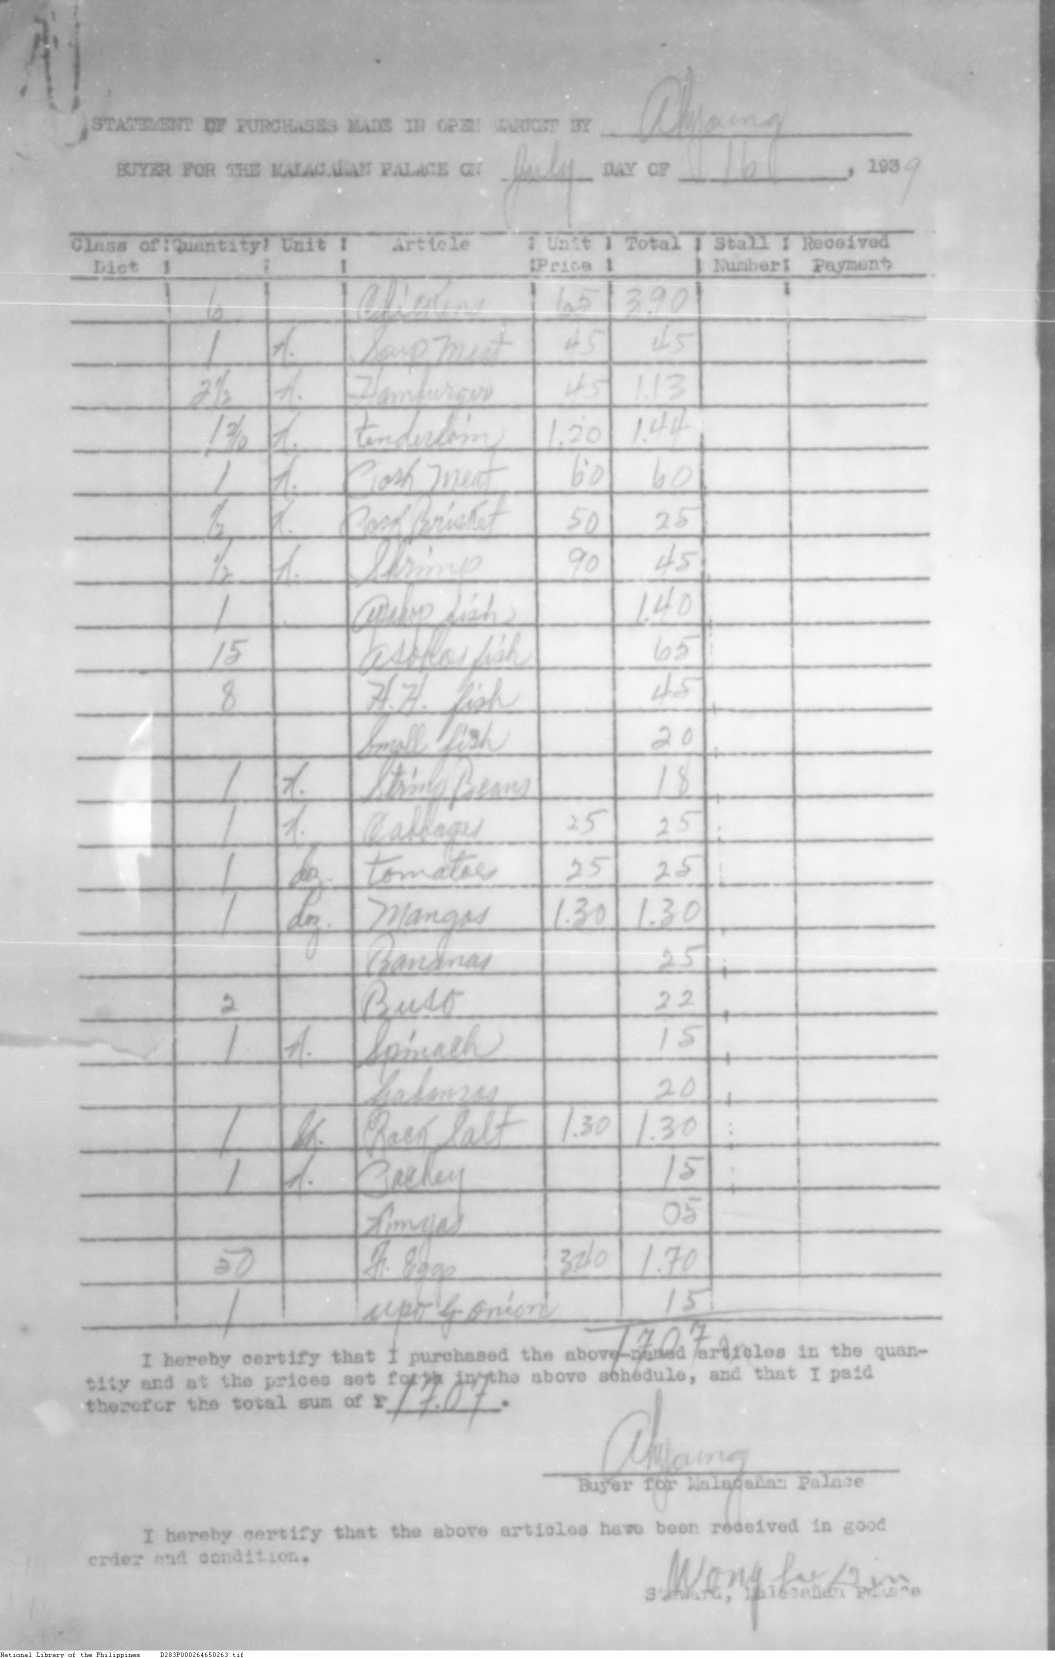 STATEMENT OF PURCHASES MADE IN OPEN MARKET BY Ahyoung
BUYER FOR THE MALACAÑAN PALACE ON July DAY OF 16, 1939
Class of Diet Quantity Unit Article Unit Price Total Stall Number Received Payment
6 Chickens 65 3.90
1 K. Soup Meat 45 45
2 1/2 K. Hamburger 45 1.13
1 2/10 K. tenderloin 1.20 1.44
1 K. Meat 60 60
1/2 K. Brisket 50 25
1/2 K. Shrimp 90 45
1 fish 1.40
15 asohos fish 65
8 H.H. fish 45
Small fish 20
1 K. String Beans 18
1 K. Cabbages 25 25
1 doz. tomatoes 25 25
1 doz. Mangos 1.30 1.30
Bananas 25
2 Buso 22
1 K. Spinach 15
20
1 Rock Salt 1.30 1.30
1 K. 15
05
50 F. Eggs 340 1.70
1 upo & onion 15
17.07
I hereby certify that I purchased the above-named articles in the quan-
tity and at the prices set forth in the above schedule, and that I paid
therefor the total sum of ₱ 17.07.
Ahyoung
Buyer for Malacañan Palace
I hereby certify that the above articles have been received in good
order and condition.
Wong
Steward, Malacañan Palace
National Library of the Philippines D283P000264650263.tif